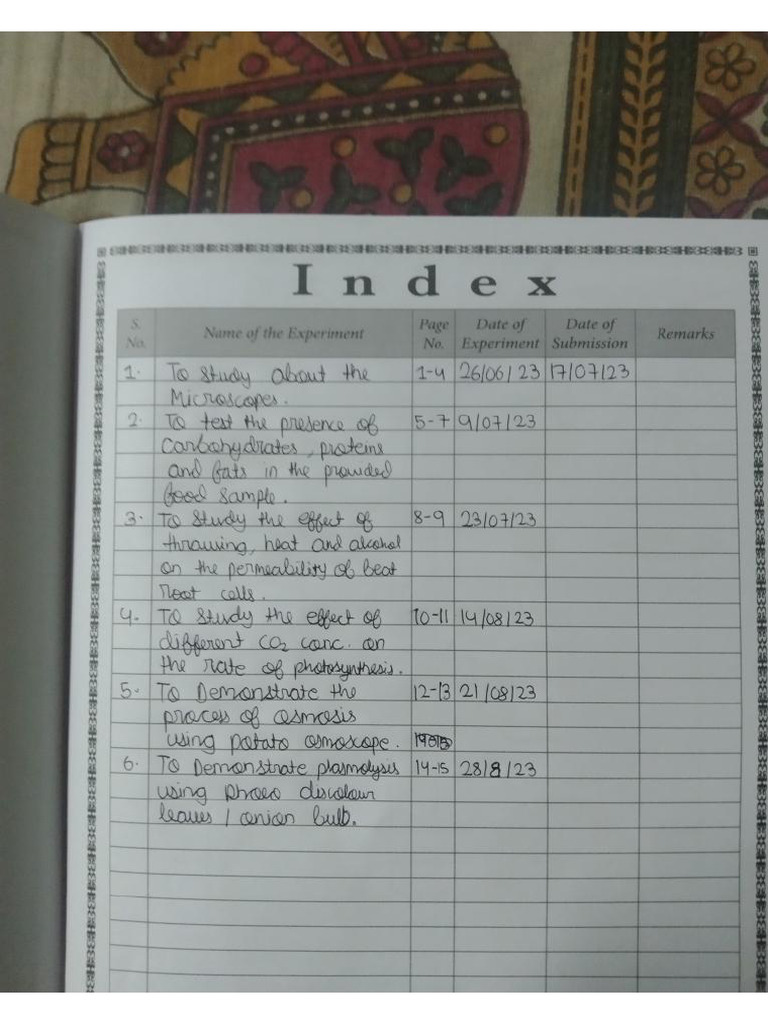 Index
S. No. Name of the Experiment Page No. Date of Experiment Date of Submission Remarks
1. To study about the 1-4 26/06/23 17/07/23
Microscopes.
2. To test the presence of 5-7 9/07/23
Carbohydrates, proteins
and fats in the provided
food sample.
3. To Study the effect of 8-9 23/07/23
thrawing, heat and alcohol
on the permeability of beat
root cells.
4. To Study the effect of 10-11 14/08/23
different CO2 conc. on
the rate of photosynthesis.
5. To Demonstrate the 12-13 21/08/23
process of osmosis
using potato osmoscope.
6. To Demonstrate plasmolysis 14-15 28/8/23
using Rhoeo discolour
leaves / onion bulb.